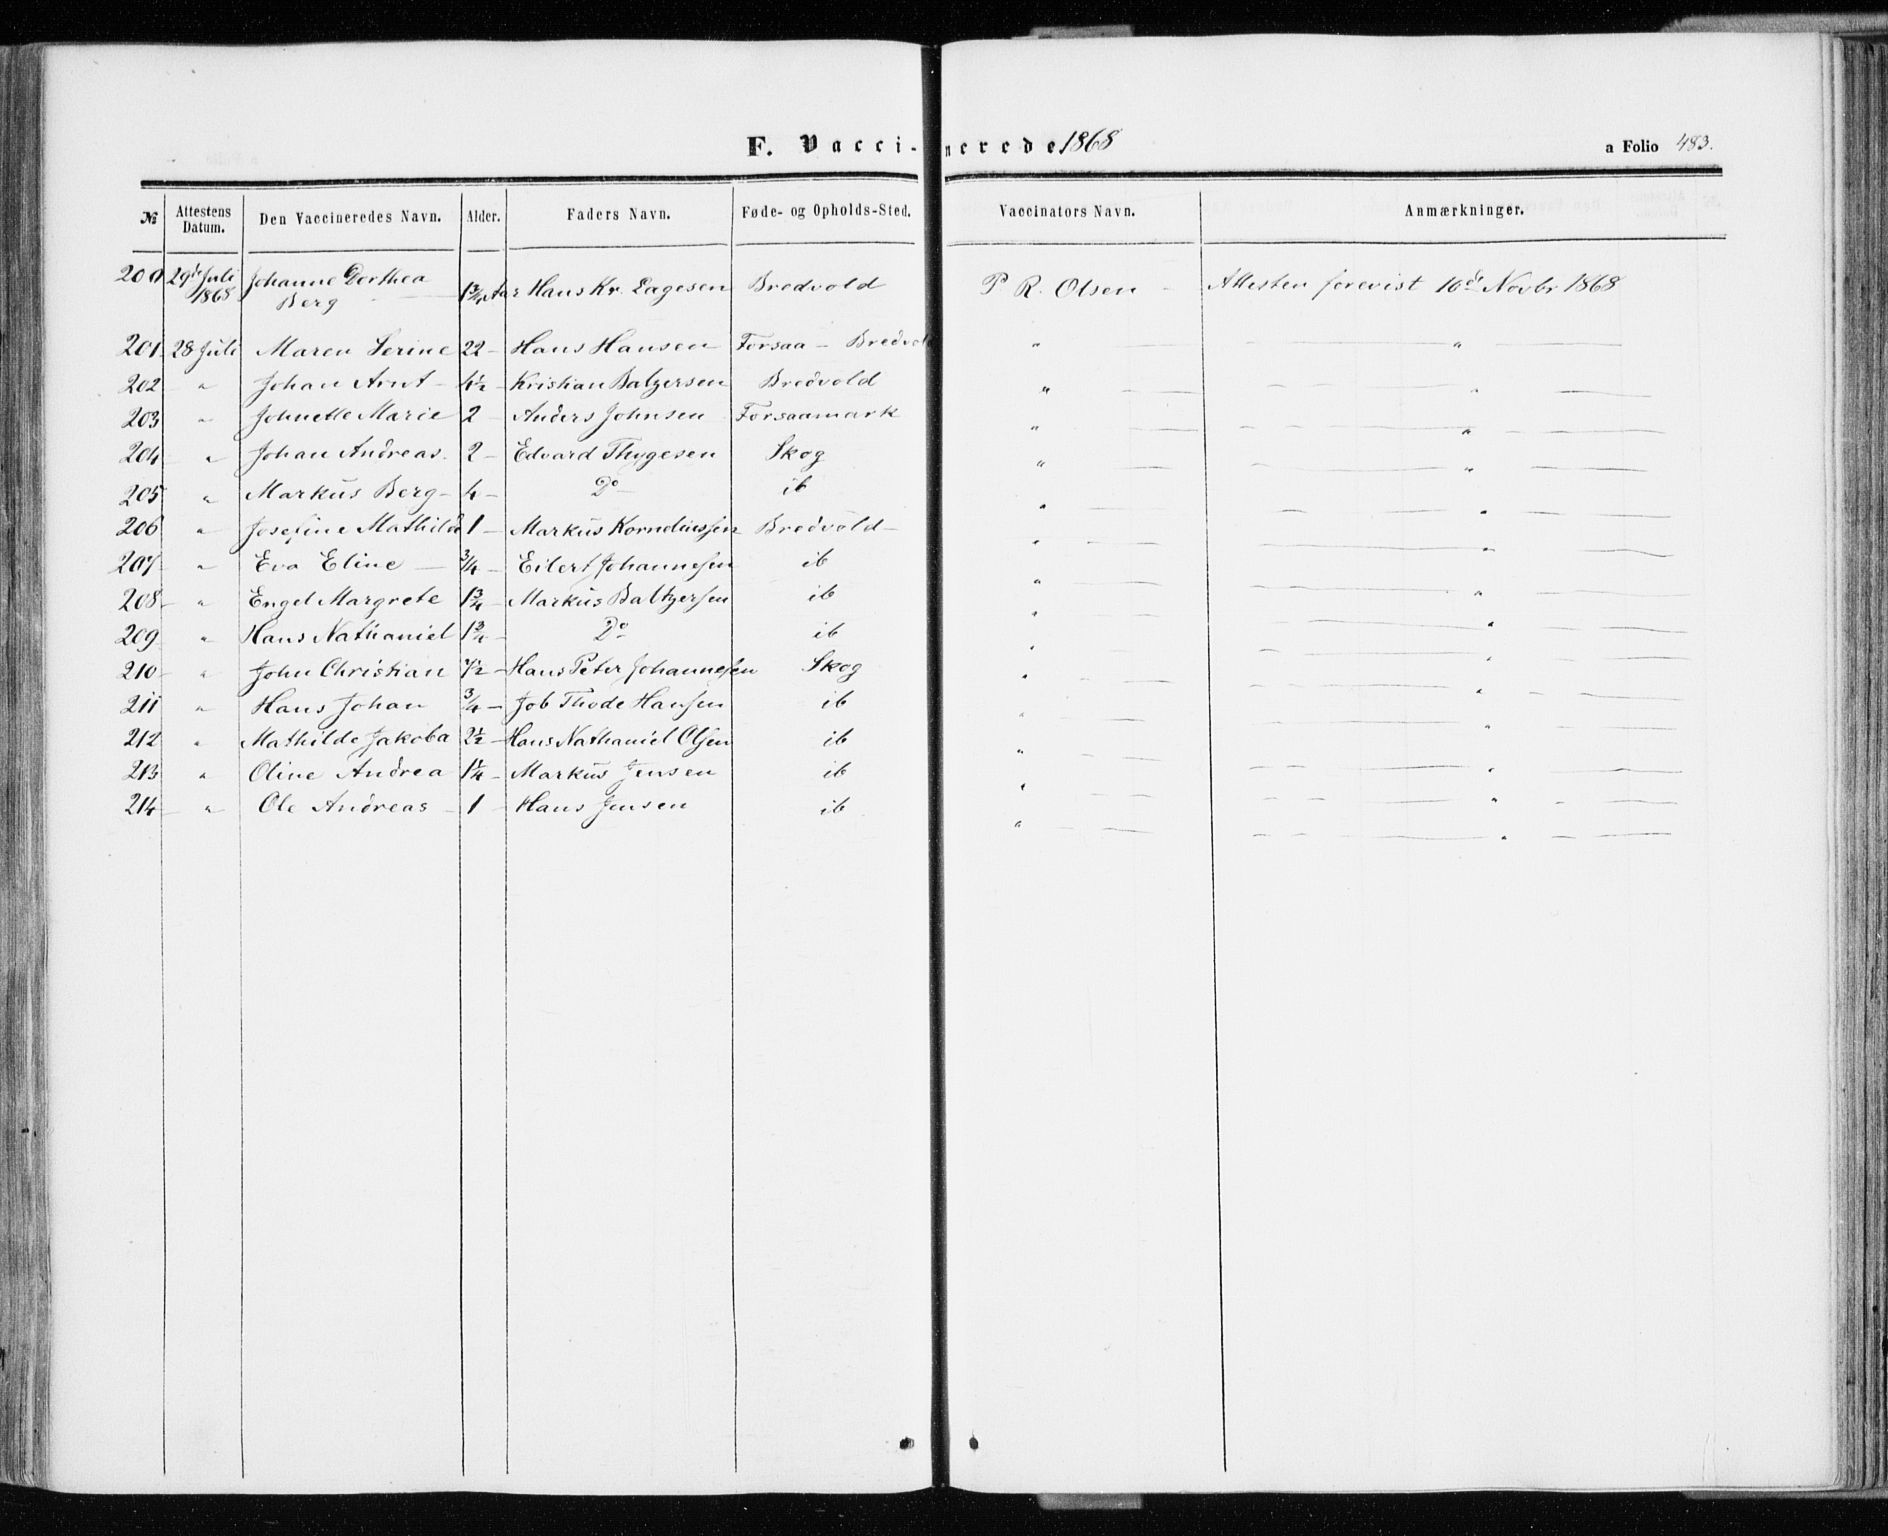 F. Vaccinerede 1868
a Folio 483.
№ Attestens Datum. Den Vaccineredes Navn. Alder. Faders Navn. Føde- og Opholds-Sted. Vaccinators Navn. Anmærkninger.
200 29de Juli 1868 Johanne Dorthea Berg 1¾ Aar Hans Kr. Lagesen Bredvold P R. Olsen - Attesten forevist 10de Novbr 1868
201 28 Juli Maren Serine 22 - Hans Hansen Forsaa - Bredvold " — " —
202 " Johan Arnt - 4½ - Kristian Balzersen Bredvold " — " —
203 " Johnette Marie 2 - Anders Johnsen Forsaamark " — " —
204 " Johan Andreas. 2 - Edvard Thygesen Skog " — " —
205 " Markus Berg - 4 - Do - ib " — " —
206 " Josefine Mathilde 1 - Markus Korneliussen Bredvold - " — " —
207 " Eva Eline — ¾ - Eilert Johannesen ib " — " —
208 - " Engel Margrete 1¾ - Markus Baltzersen ib " — " —
209 " Hans Nathaniel 1¾ - Do ib " — " —
210 - " John Christian ½ - Hans Peter Johannesen Skog " — " —
211 " Hans Johan ¾ - Job Thode Hansen ib " — " —
212 " Mathilde Jakoba 2½ - Hans Nathaniel Olsen ib " — " —
213 " Oline Andrea 1¼ - Markus Jensen ib " — " —
214 - " Ole Andreas - 1 - Hans Jensen ib " — " —